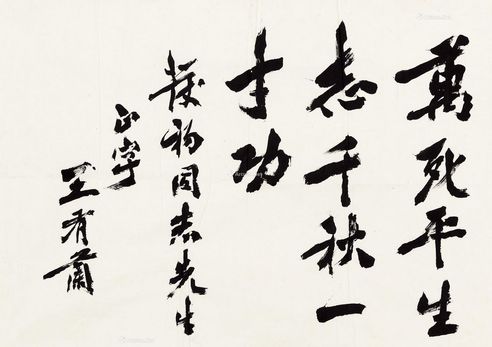 萬死平生
志千秋一
寸功
同志先生
正字
王